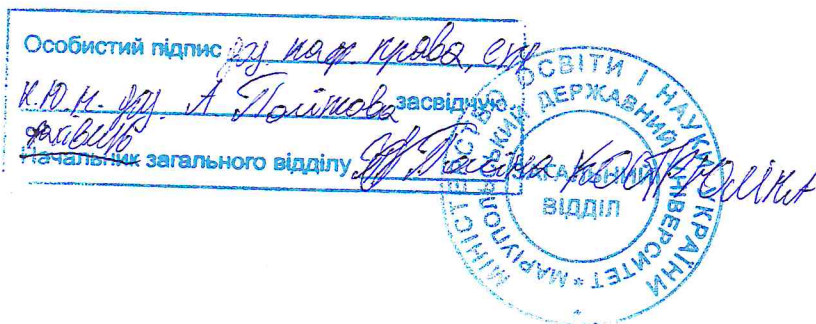 Особистий підпис доц каф. права,
к.ю.н. доц. А засвідчую.
фахівець
Начальник загального відділу КОСТРЮЛІНА
МІНІСТЕРСТВО ОСВІТИ І НАУКИ УКРАЇНИ
МАРІУПОЛЬСЬКИЙ ДЕРЖАВНИЙ УНІВЕРСИТЕТ *
ЗАГАЛЬНИЙ
ВІДДІЛ